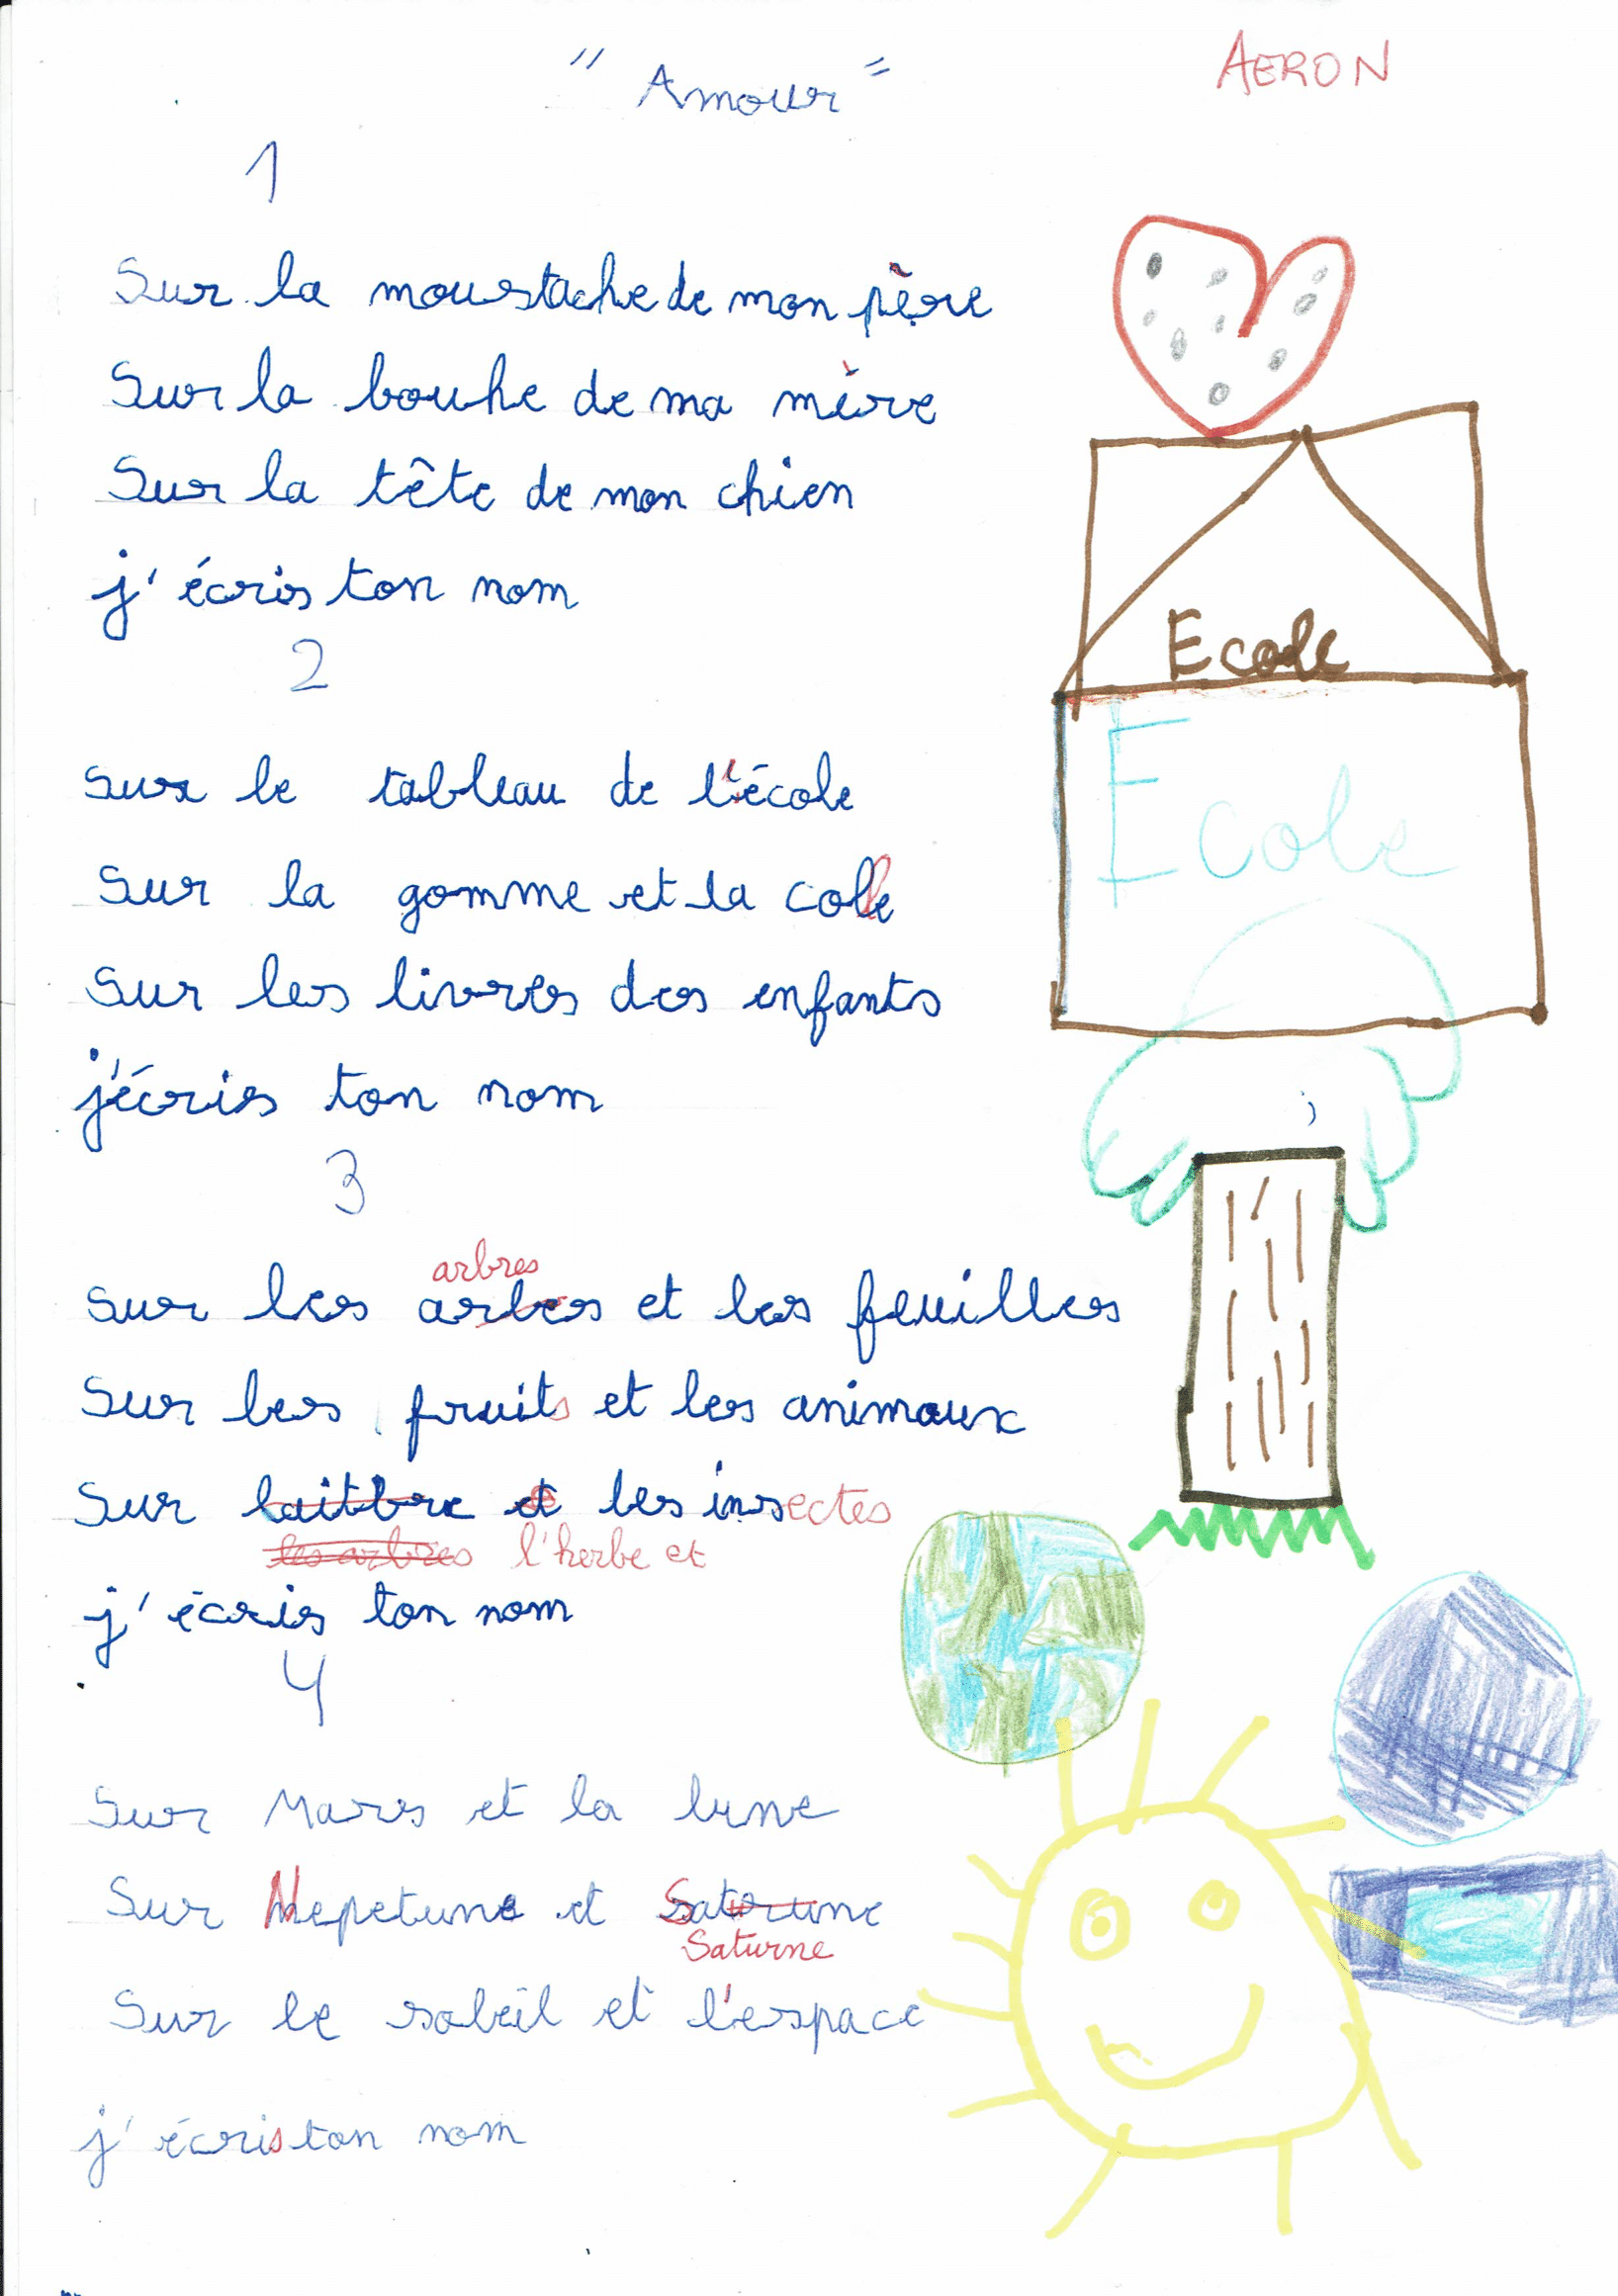 "Amour"
AERON
1
Sur la moustache de mon père
Sur la bouhe de ma mère
Sur la tête de mon chien
j'écris ton nom
2
Sur le tableau de l'école
Sur la gomme et la colle
Sur les livres des enfants
j'écris ton nom
3
arbres
Sur les arbes et les feuilles
Sur les fruits et les animaux
Sur laitbre et les insectes
les arbres l'herbe et
j'écris ton nom
4
Sur Mars et la lune
Sur Nepetune et Satrune
Saturne
Sur le soleil et l'espace
j'écris ton nom
Ecole
Ecole